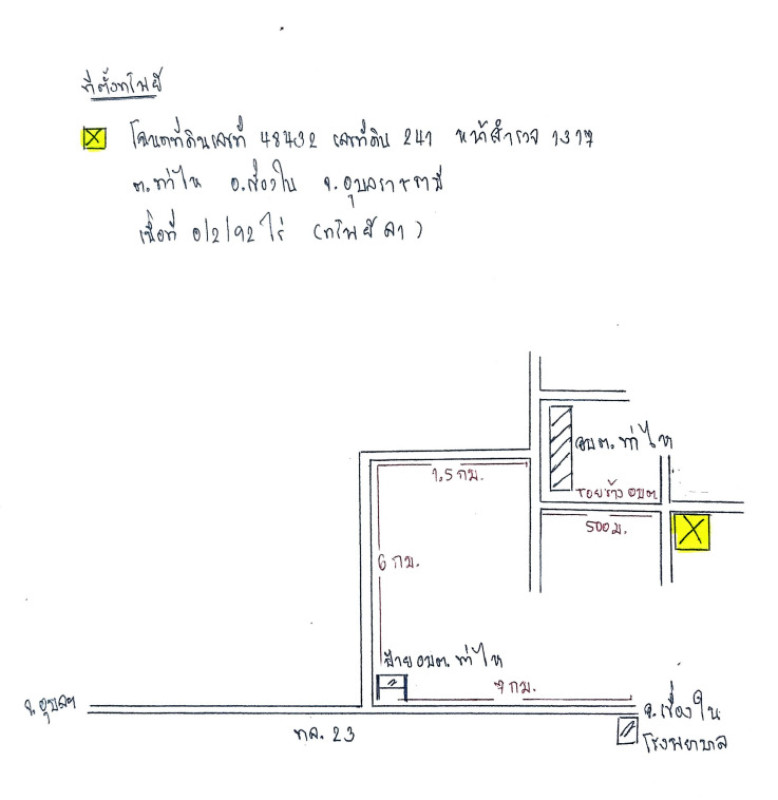 ที่ตั้งทรัพย์
โฉนดที่ดินเลขที่ 48432 เลขที่ดิน 241 หน้าสำรวจ 1317
ต.ท่าไห อ.เขื่องใน จ.อุบลราชธานี
เนื้อที่ 0/2/92 ไร่ (ทรัพย์ ลา)
อบต.ท่าไห
1.5 กม.
ซอยข้าง อบต.
500 ม.
6 กม.
ป้าย อบต. ท่าไห
9 กม.
จ.อุบลฯ
อ.เขื่องใน
ทล. 23
โรงพยาบาล